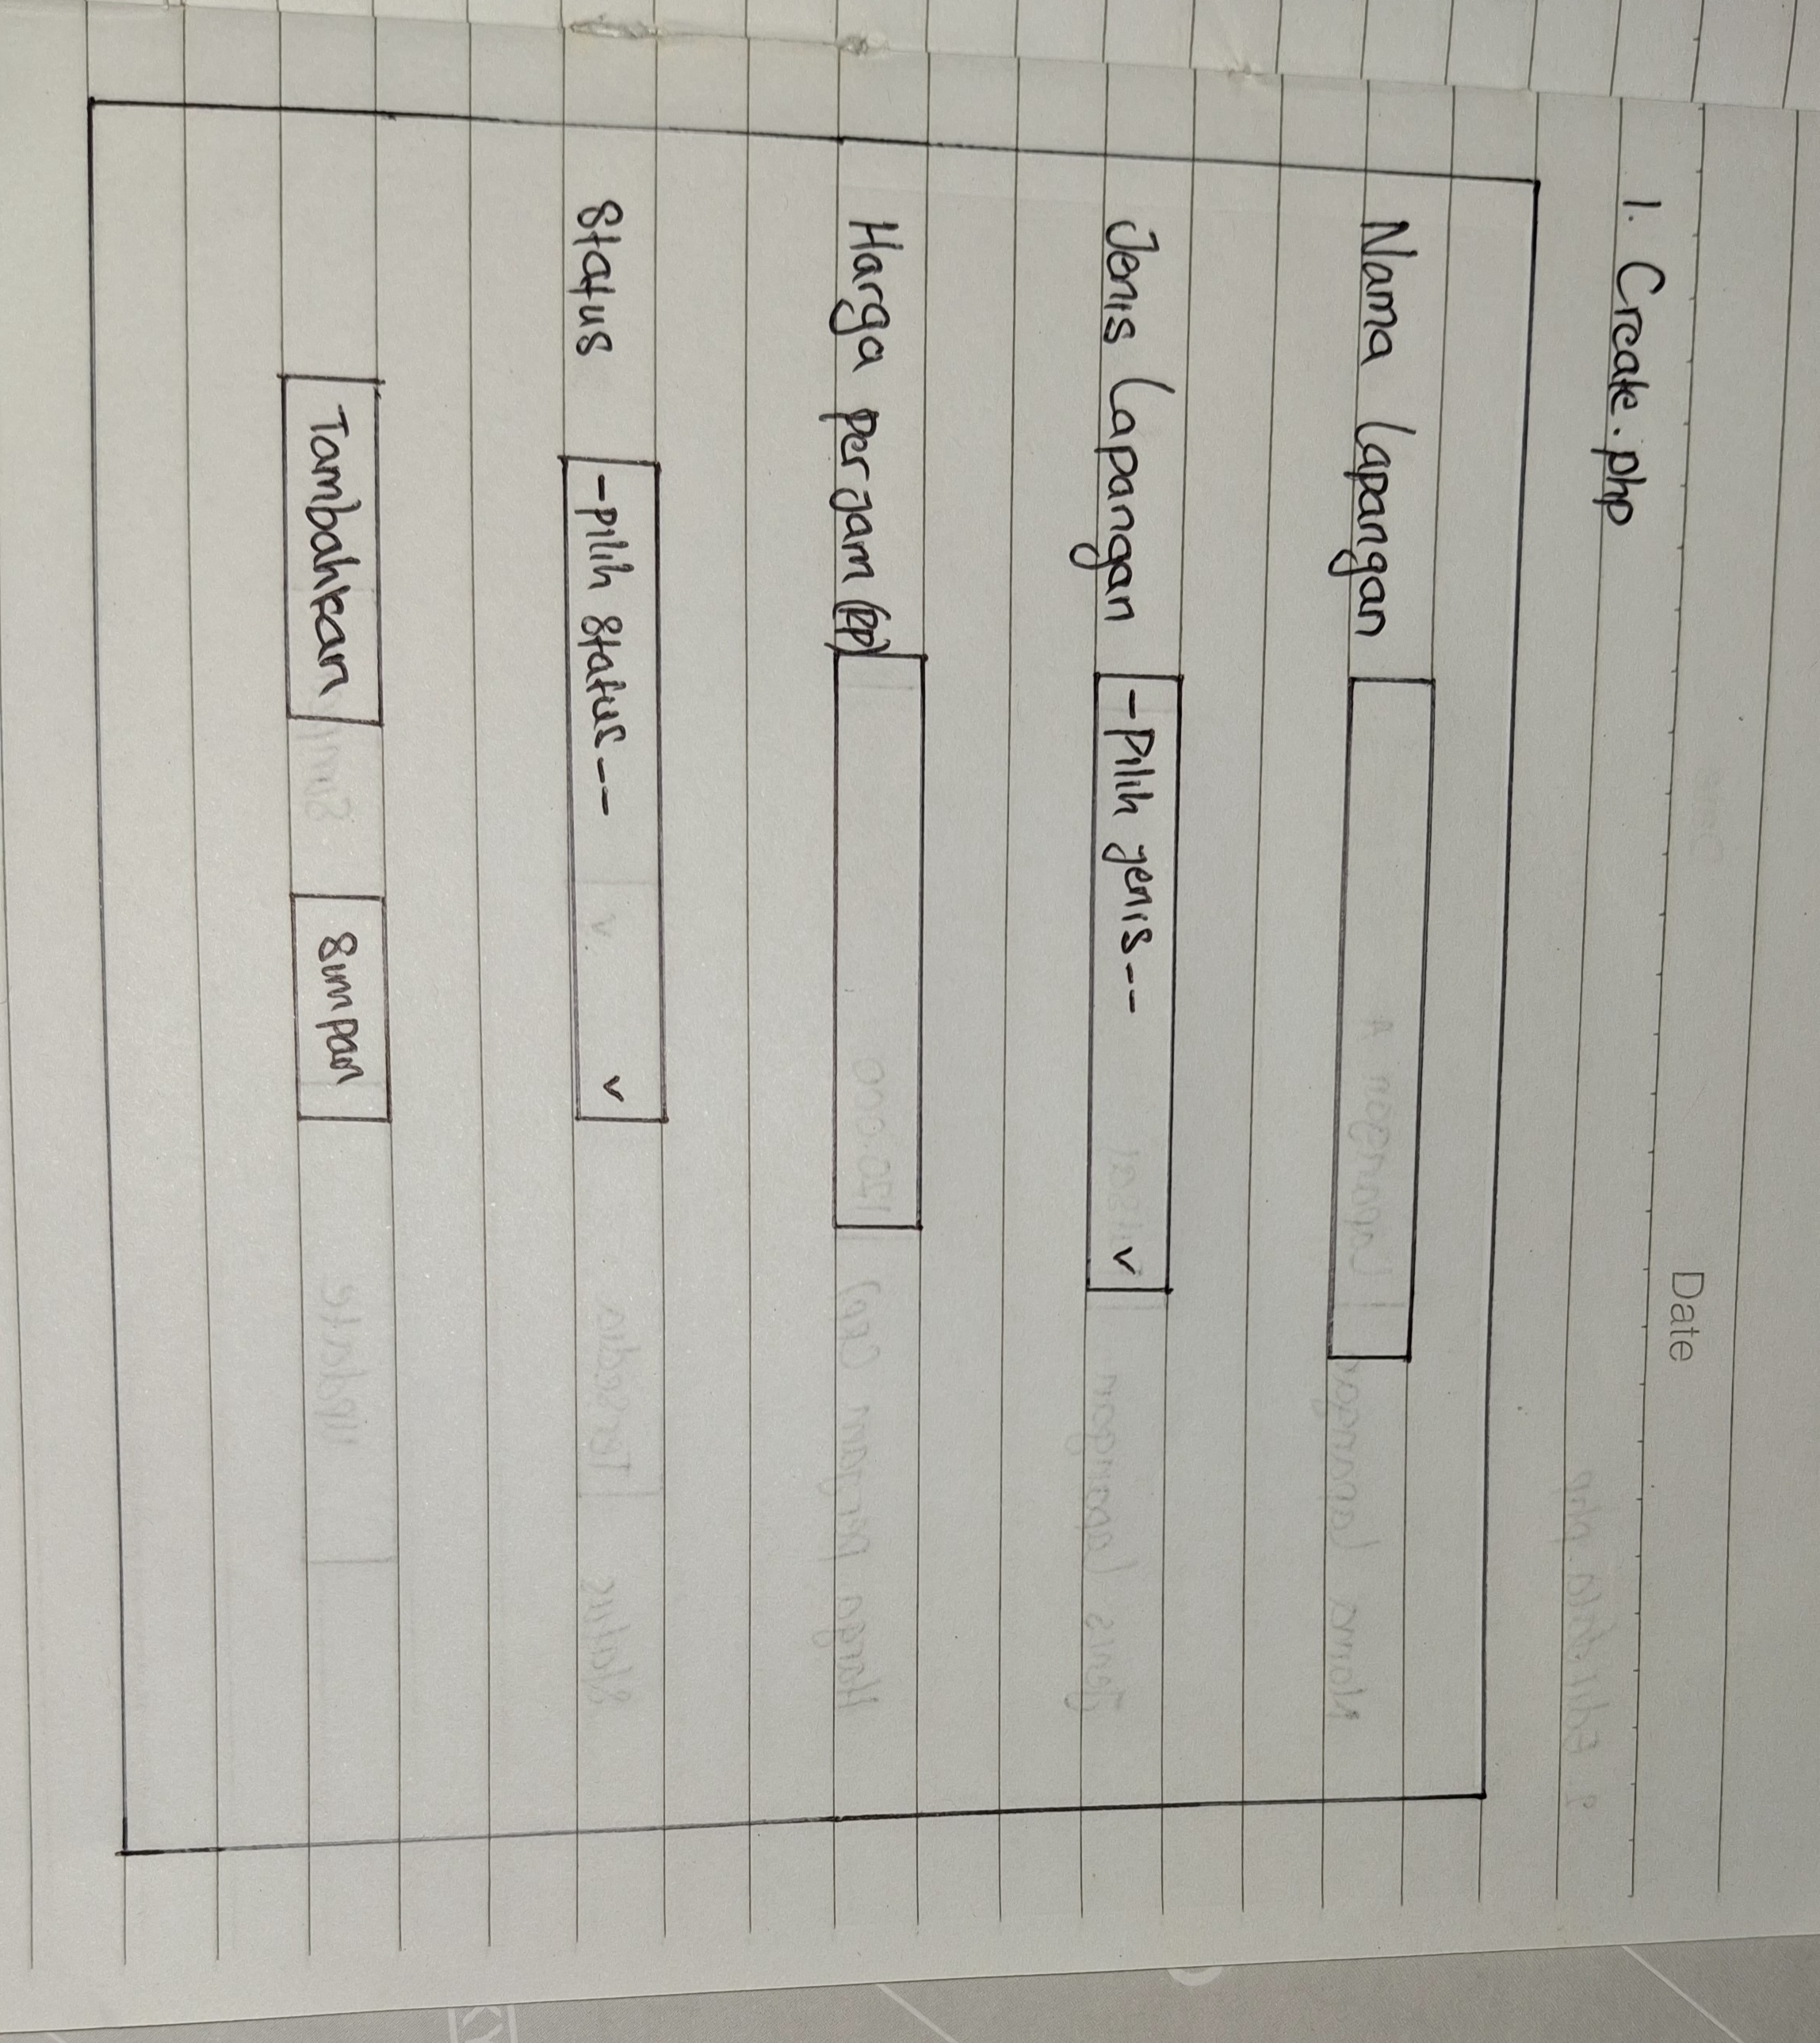 Date
1. Create.php
Nama Lapangan
Jenis Lapangan -Pilih jenis-- v
Harga perjam (Rp)
Status -pilih status-- v
Tambahkan simpan